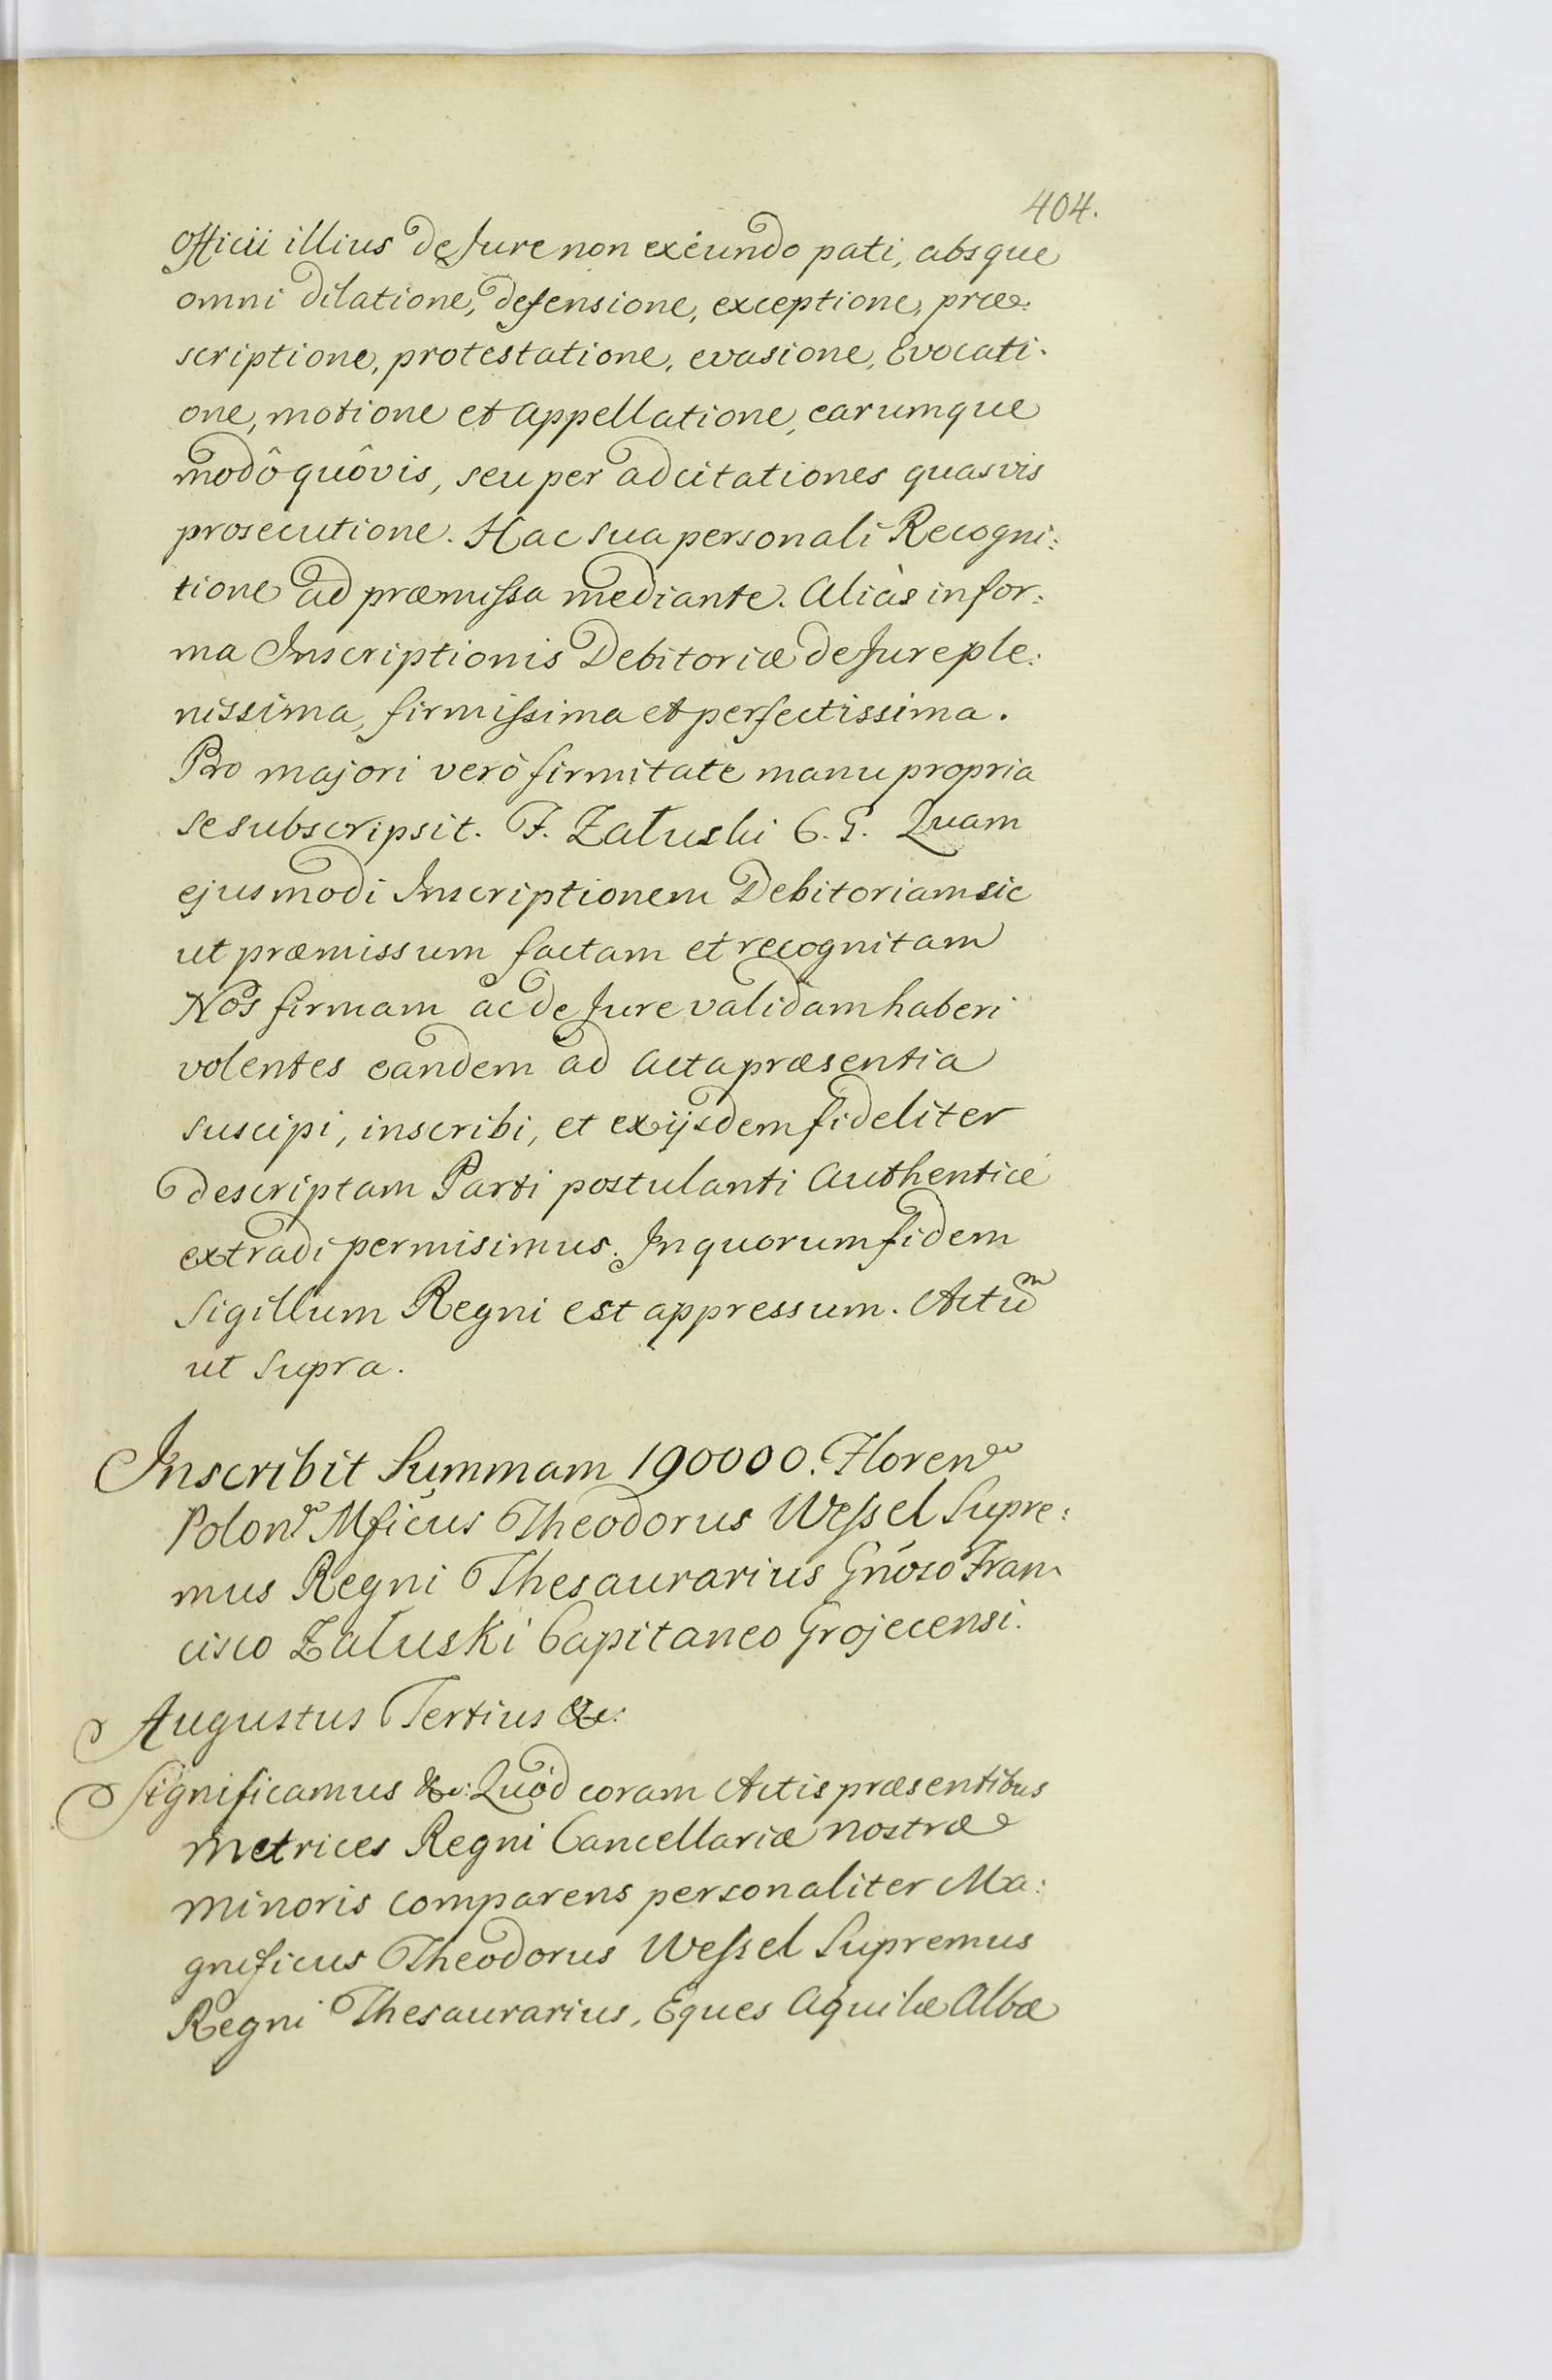 404.
Officii illius de Jure non exeundo pati, absque
omni dilatione, defensione, exceptione, præ:
scriptione, protestatione, evasione, Evocati:
one, motione et appellatione, earumque
modô quôvis, seu per adcitationes quasvis
prosecutione. Hac sua personali Recogni:
tione ad præmissa mediante. Aliàs in for:
ma Inscriptionis Debitoriæ de Jure ple:
nissima, firmissima et perfectissima.
Pro majori verò firmitate manu propria
se subscripsit. F. Załuski C. G. Quam
ejusmodi Inscriptionem Debitoriam sic
ut præmissum factam et recognitam
Nos firmam ac de Jure validam haberi
volentes eandem ad Acta præsentia
suscipi, inscribi, et ex ijsdem fideliter
descriptam Parti postulanti Authenticè
extradi permisimus. In quorum fidem
Sigillum Regni est appressum. Actũm
ut supra.
Inscribit Summam 190000. Floren
Polon Mficus Theodorus Wessel Supre:
mus Regni Thesaurarius Gñoso Fran
cisco Załuski Capitaneo Grojecensi.
Augustus Tertius &c:
Significamus &c: Quòd coram Actis præsentibus
Metrices Regni Cancellariæ nostræ
minoris comparens personaliter Ma:
gnificus Theodorus Wessel Supremus
Regni Thesaurarius, Eques Aquilæ Albæ